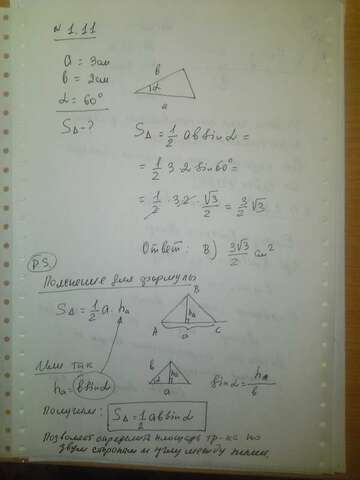 № 1.11
a = 3см
b = 2см
α = 60°
S△ - ?
b
α
a
S△ = 1/2 ab sin α =
= 1/2 3 2 sin 60° =
= 1/2 · 3 2 · √3/2 = 3/2 √3
Ответ: B) 3√3/2 см²
P.S.
Пояснение для формулы
S△ = 1/2 a · hₐ
B
hₐ
A
C
a
Или так
hₐ = b sin α
b
hₐ
α
a
sin α = hₐ/b
Получим: S△ = 1/2 ab sin α
Позволяет определить площадь тр-ка по
двум сторонам и углу между ними.